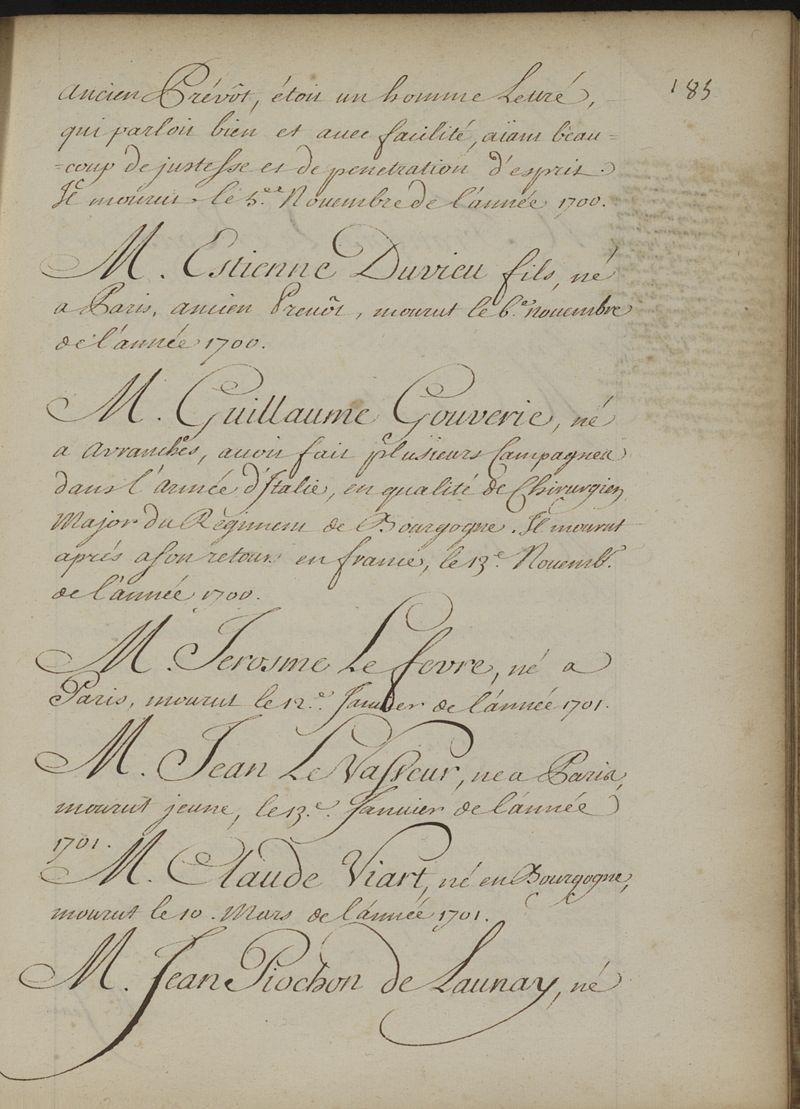 185
ancien Prévôt, étoit un homme Lettré,
qui parloit bien et avec facilité, aïant beau=
=coup de justesse et de penetration d'esprit.
Il mourut le 5.e Novembre de l'année 1700.
M. Estienne Duvieu fils, né
a Paris, ancien Prevôt, mourut le 6.e novembre
de l'année 1700.
M. Guillaume Gouverie, né
a Avranches, avoit fait plusieurs Campagnes
dans l'armée d'Italie, en qualité de Chirurgien
Major du Régiment de Bourgogne. Il mourut
aprés a son retour en france, le 13.e Novemb.e
de l'année 1700.
M. Jerosme Le fevre, né a
Paris, mourut le 12.e Janvier de l'année 1701.
M. Jean Le Vasseur, né a Paris,
mourut jeune, le 13.e Janvier de l'année
1701.
M. Claude Viart, né en Bourgogne,
mourut le 10. Mars de l'année 1701.
M. Jean Piochon de Launay, né